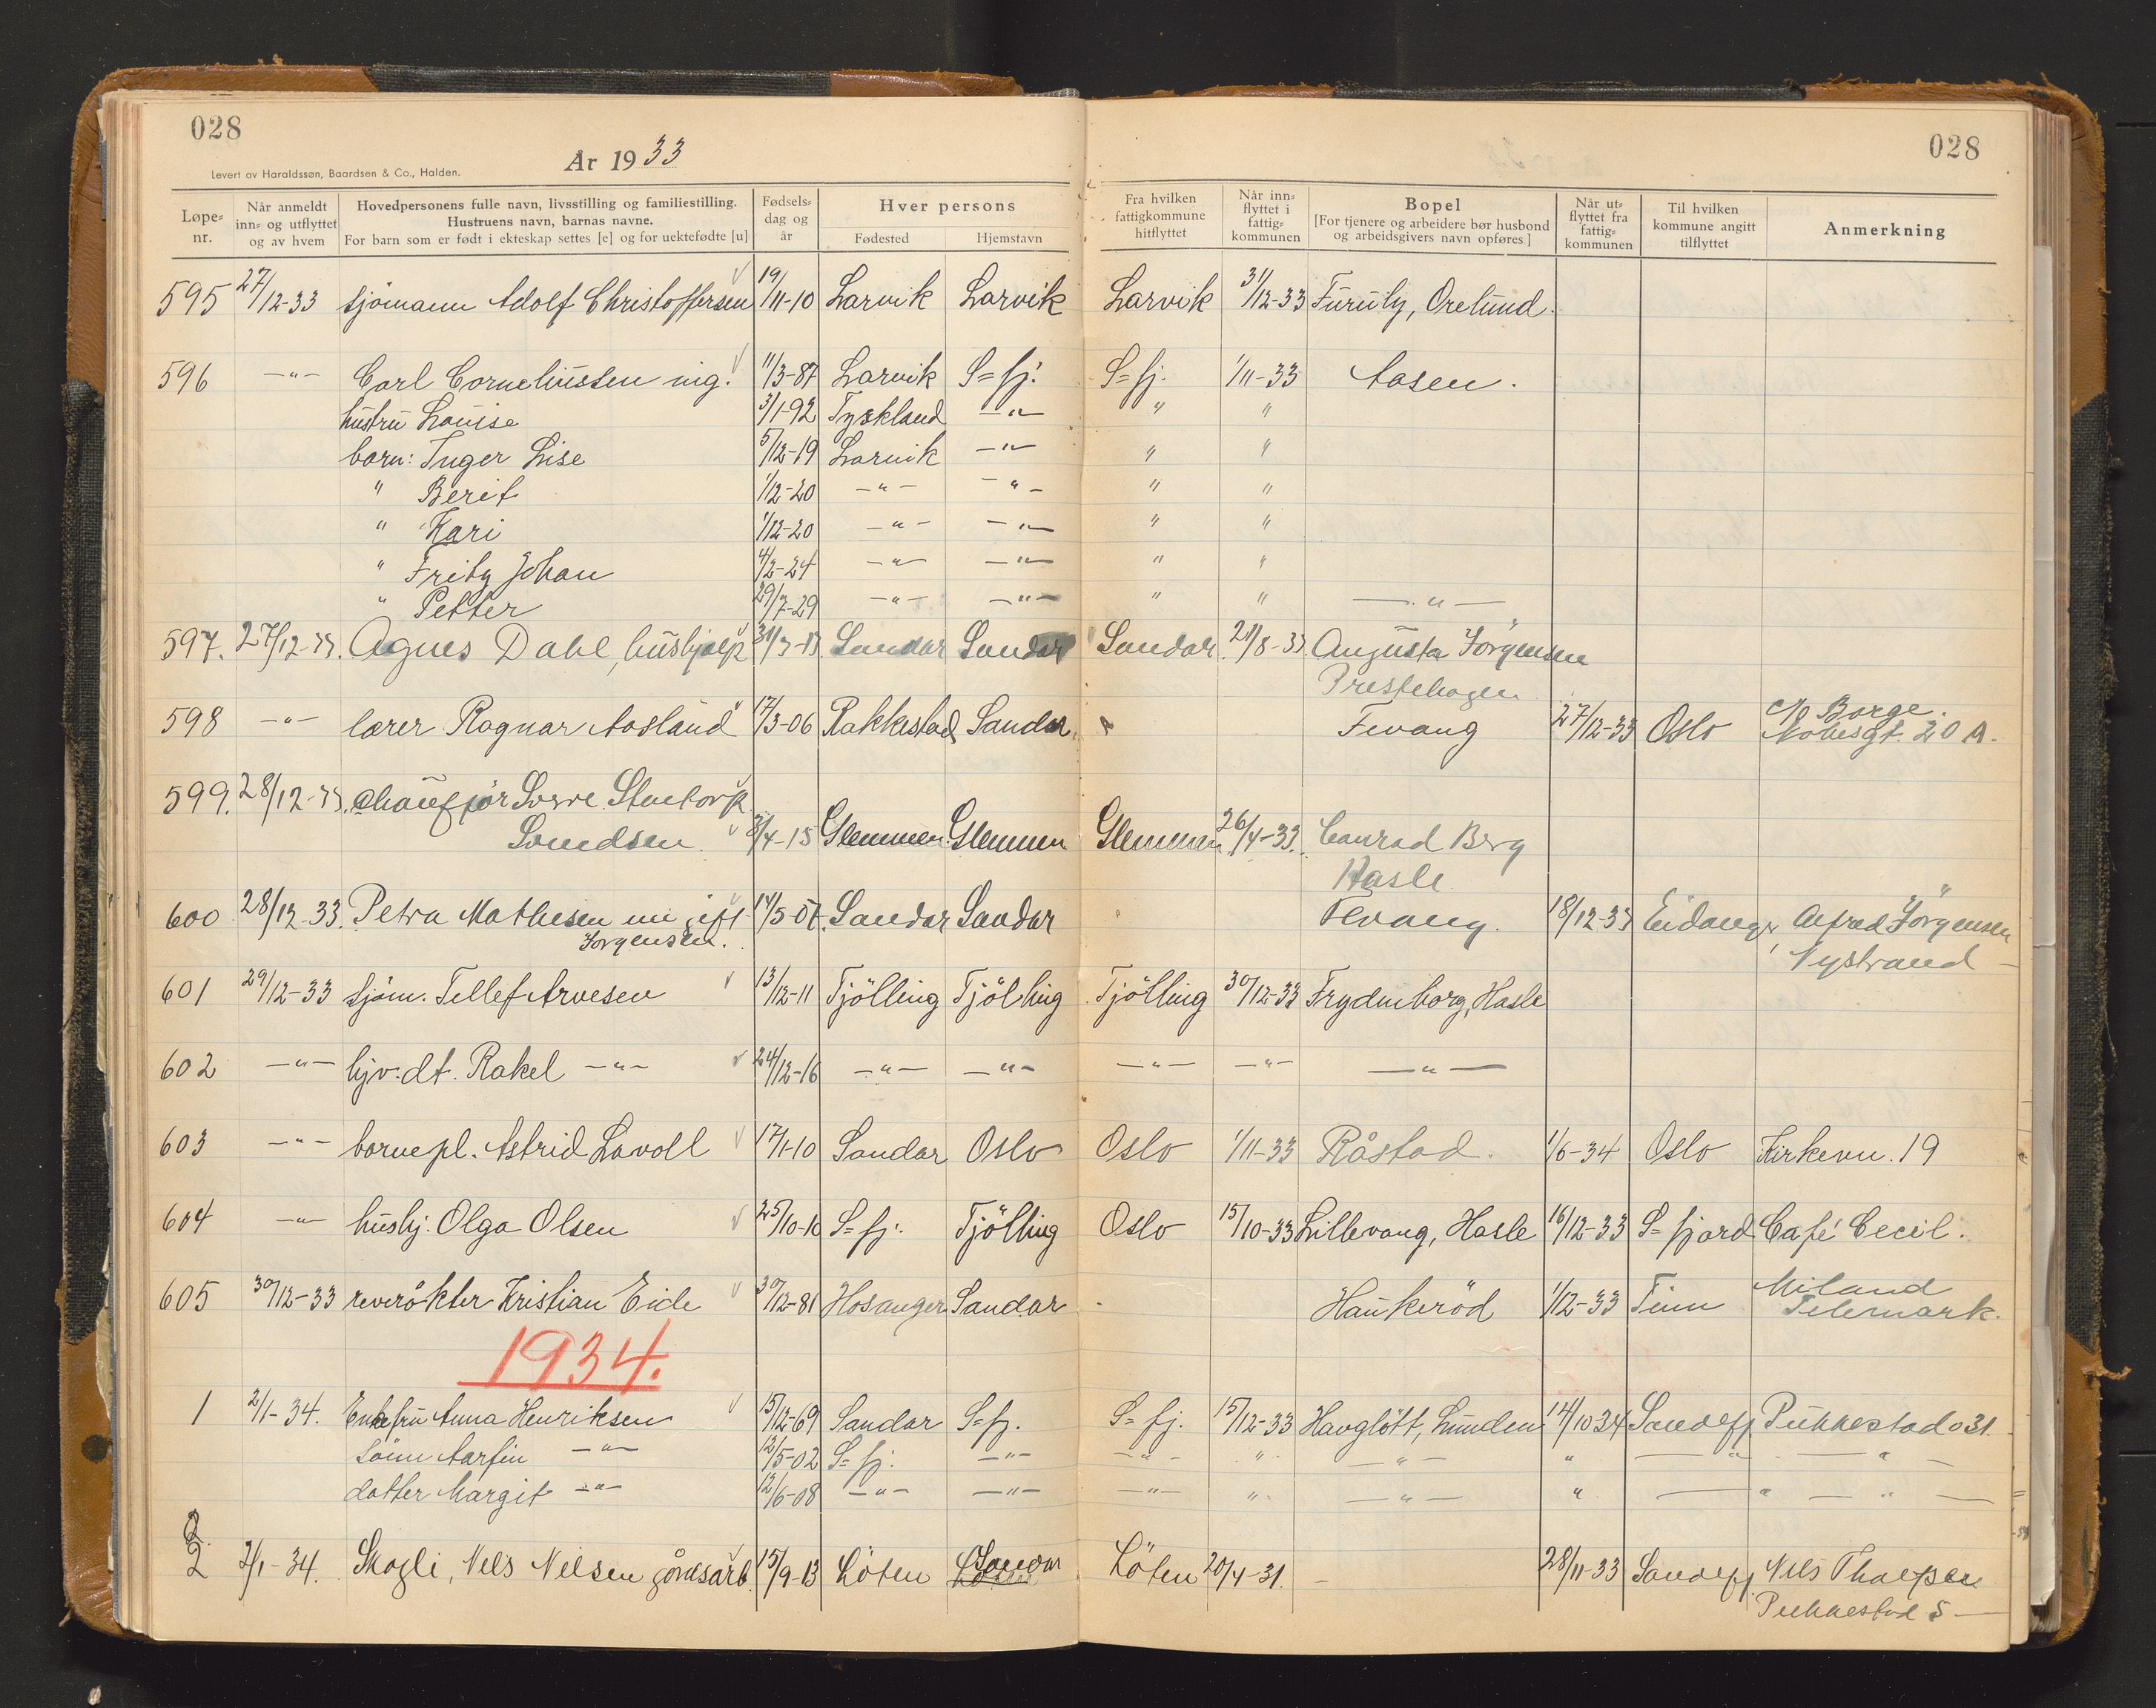 028
028
År 1933
Levert av Haraldssøn, Baardsen & Co., Halden.
Løpe= nr. Når anmeldt inn= og utflyttet og av hvem Hovedpersonens fulle navn, livsstilling og familiestilling. Hustruens navn, barnas navne. For barn som er født i ekteskap settes [e] og for uektefødte [u] Fødsels= dag og år Hver persons Fødested Hjemstavn Fra hvilken fattigkommune hitflyttet Når inn= flyttet i fattig= kommunen Bopel [For tjenere og arbeidere bør husbond og arbeidsgivers navn opføres] Når ut= flyttet fra fattig= kommunen Til hvilken kommune angitt tilflyttet Anmerkning
595 27/12-33 sjömann Adolf Christoffersen 19/11-10 Larvik Larvik Larvik 31/12-33 Furuly, Orelund.
596 -"- Carl Corneliussen ing. 11/3-87 Larvik S=fj. S=fj. 1/11-33 Aasen.
hustru Louise 3/1-92 Tyskland -"- " "
barn: Inger Lise 5/12-19 Larvik -"- " "
" Berit 1/12-20 -"- -"- " "
" Kari 1/12-20 -"- -"- " "
" Fritz Johan 4/2-24 -"- -"- " "
" Petter 29/7-29 -"- -"- " " -"-
597. 27/12-33. Agnes Dahl, hushjelp 31/3-13 Sandar Sandar Sandar 21/8-33 Augusta Jörgensen
Prestehagen
598 -"- lærer Ragnar Aasland 17/3-06 Rakkestad Sandar Fevang 27/12-33 Oslo c/o Borge.
Nobelsgt. 20 A.
599. 28/12-33. chauffjör Sverre Stentorp
Svendsen 3/4-15 Glemmen Glemmen Glemmen 26/4-33. Conrad Berg
Hasle
600 28/12-33. Petra Mathisen nu gift 14/5-07 Sandar Sandar Fevang. 18/12-33 Eidanger Alfred Jörgensen
Jorgensen. Nystrand
601 29/12-33 sjöm. Tellef Arvesen 13/12-11 Tjölling Tjölling Tjölling 30/12-33 Frydenborg, Hasle
602 -"- hjv. dt. Rakel -"- 24/12-16 -"- -"- -"- -"- -"-
603 -"- barnepl. Astrid Lavoll 17/1-10 Sandar Oslo Oslo 1/11-33 Råstad. 1/6-34 Oslo Kirkevn. 19
604 -"- hushj. Olga Olsen 25/10-10 S=fj. Tjölling Oslo 15/10-33 Lillevang, Hasle 16/12-33 S=fjord Café Cecil.
605 30/12-33 reverökter Kristian Eide 30/12-81 Hosanger Sandar Haukeröd 1/12-33 Tinn Miland
Telemark.
1934.
1 2/1-34. Enkefru Anna Henriksen 15/12-69 Sandar S=fj. S=fj. 15/12-33 Havglött, Lunden 14/10 34 Sandefj. Pukkestad o 31.
Sönn Aarfin -"- 12/5-02 S=fj. -"- -"- " -"- " -"- -"-
datter Margit -"- 12/6-08 -"- -"- -"- " -"- " -"- -"-
2 2/1-34. Skogli, Nils Nilsen gårdsarb. 15/9-13 Löten Sandar Löten 20/4-31. - 28/11-33 Sandefj.
Pukkestad S